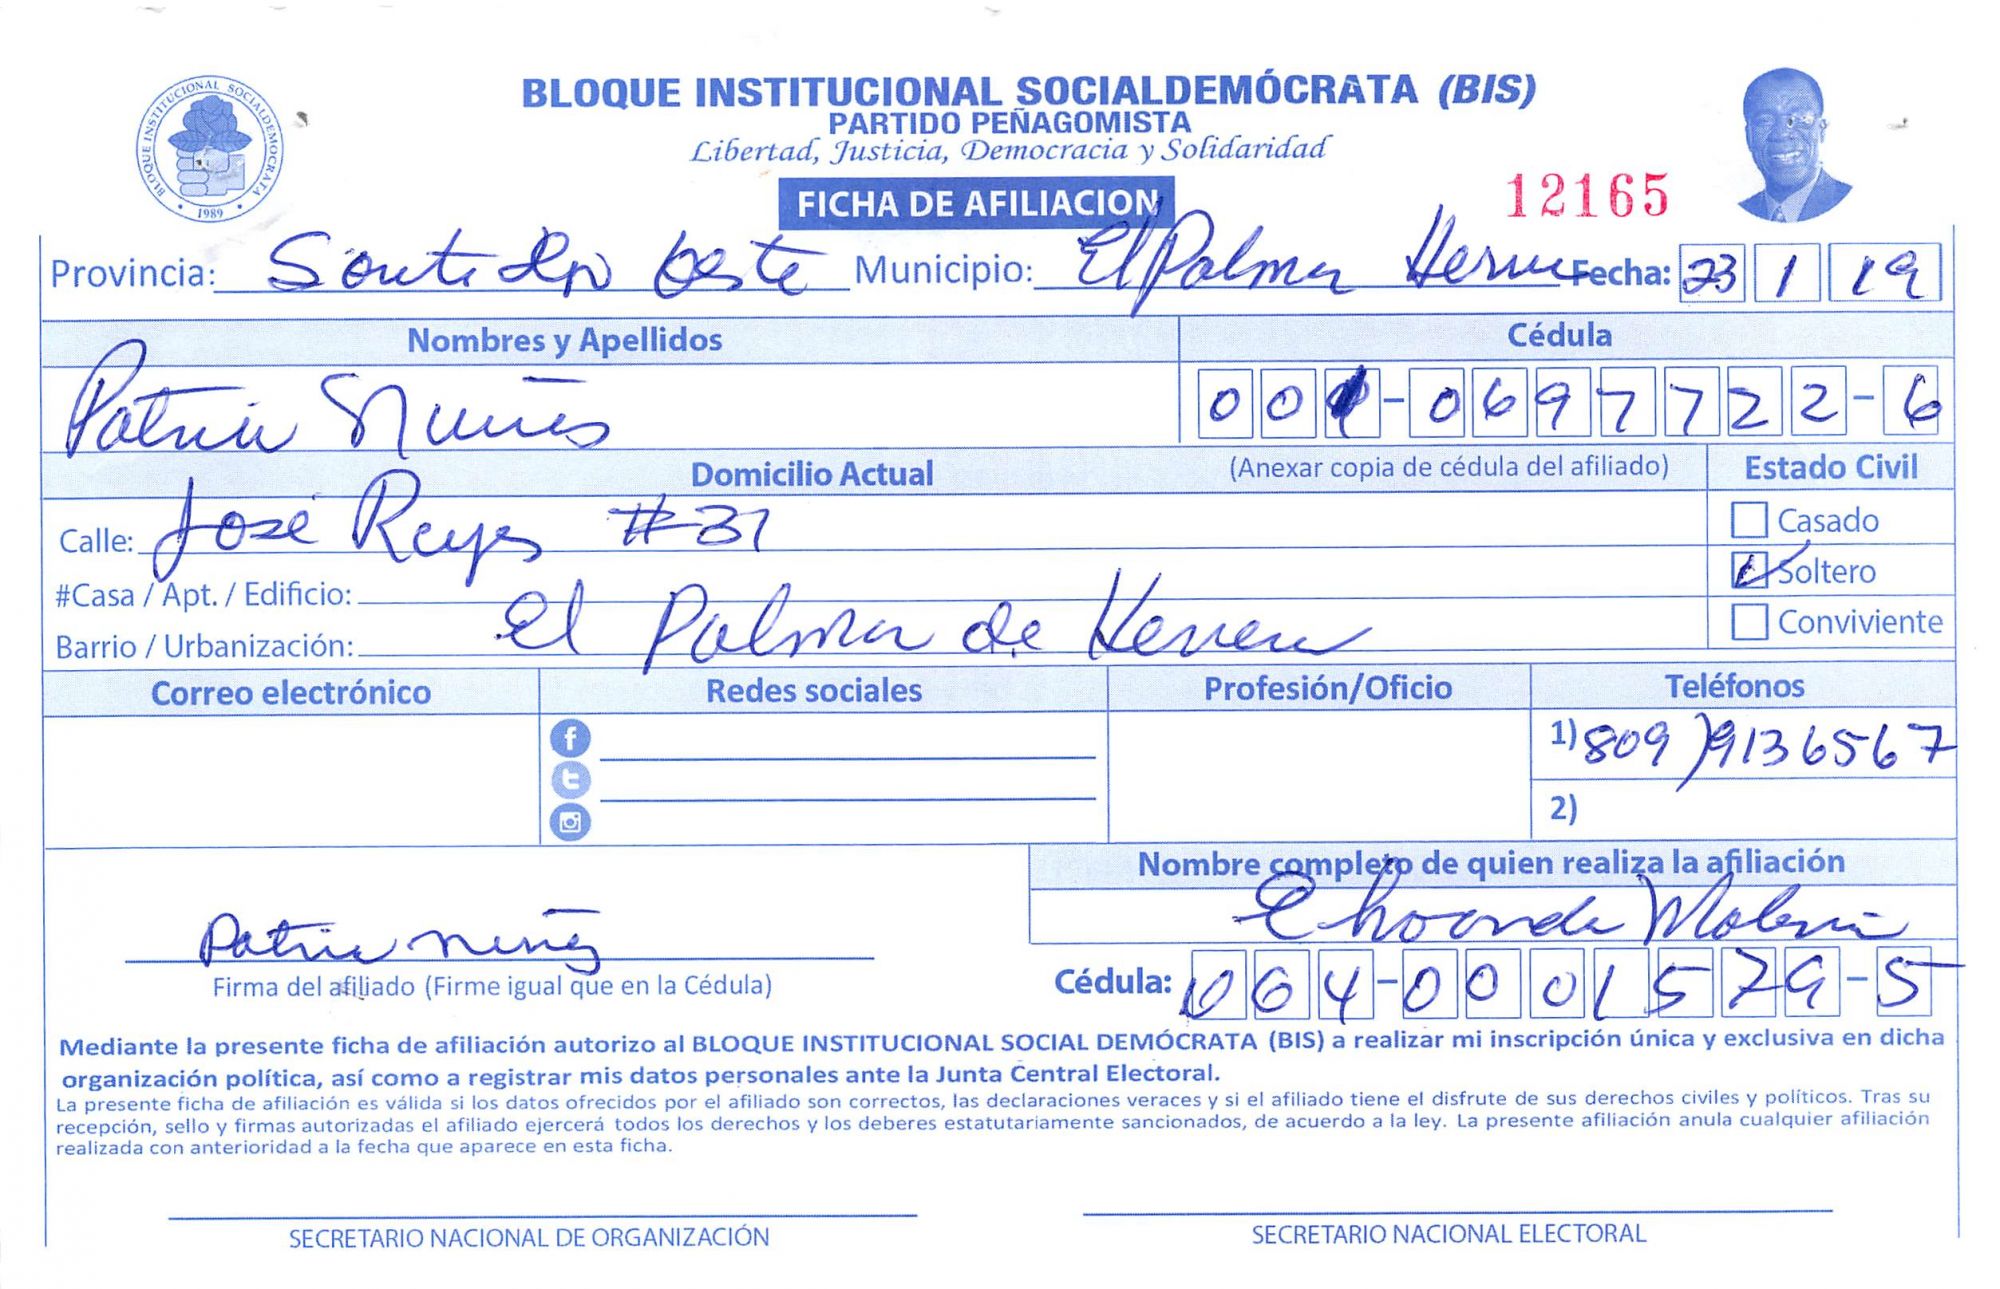 BLOQUE INSTITUCIONAL SOCIALDEMOCRATA
1989
BLOQUE INSTITUCIONAL SOCIALDEMÓCRATA (BIS)
PARTIDO PEÑAGOMISTA
Libertad, Justicia, Democracia y Solidaridad
FICHA DE AFILIACION
12165
Provincia: Oeste Municipio: El Palmar Fecha: 23 1 19
Nombres y Apellidos Cédula
Patria Nuñes 001-0697722-6
Domicilio Actual (Anexar copia de cédula del afiliado) Estado Civil
Calle: José Reyes #31
Casado
#Casa / Apt. / Edificio:
Soltero
Barrio / Urbanización: El Palmar de Herrera
Conviviente
Correo electrónico Redes sociales Profesión/Oficio Teléfonos
1) 809)9136567
2)
Nombre completo de quien realiza la afiliación
Patria nuñez
Firma del afiliado (Firme igual que en la Cédula)
Cédula: 064-0001579-5
Mediante la presente ficha de afiliación autorizo al BLOQUE INSTITUCIONAL SOCIAL DEMÓCRATA (BIS) a realizar mi inscripción única y exclusiva en dicha
organización política, así como a registrar mis datos personales ante la Junta Central Electoral.
La presente ficha de afiliación es válida si los datos ofrecidos por el afiliado son correctos, las declaraciones veraces y si el afiliado tiene el disfrute de sus derechos civiles y políticos. Tras su
recepción, sello y firmas autorizadas el afiliado ejercerá todos los derechos y los deberes estatutariamente sancionados, de acuerdo a la ley. La presente afiliación anula cualquier afiliación
realizada con anterioridad a la fecha que aparece en esta ficha.
SECRETARIO NACIONAL DE ORGANIZACIÓN
SECRETARIO NACIONAL ELECTORAL